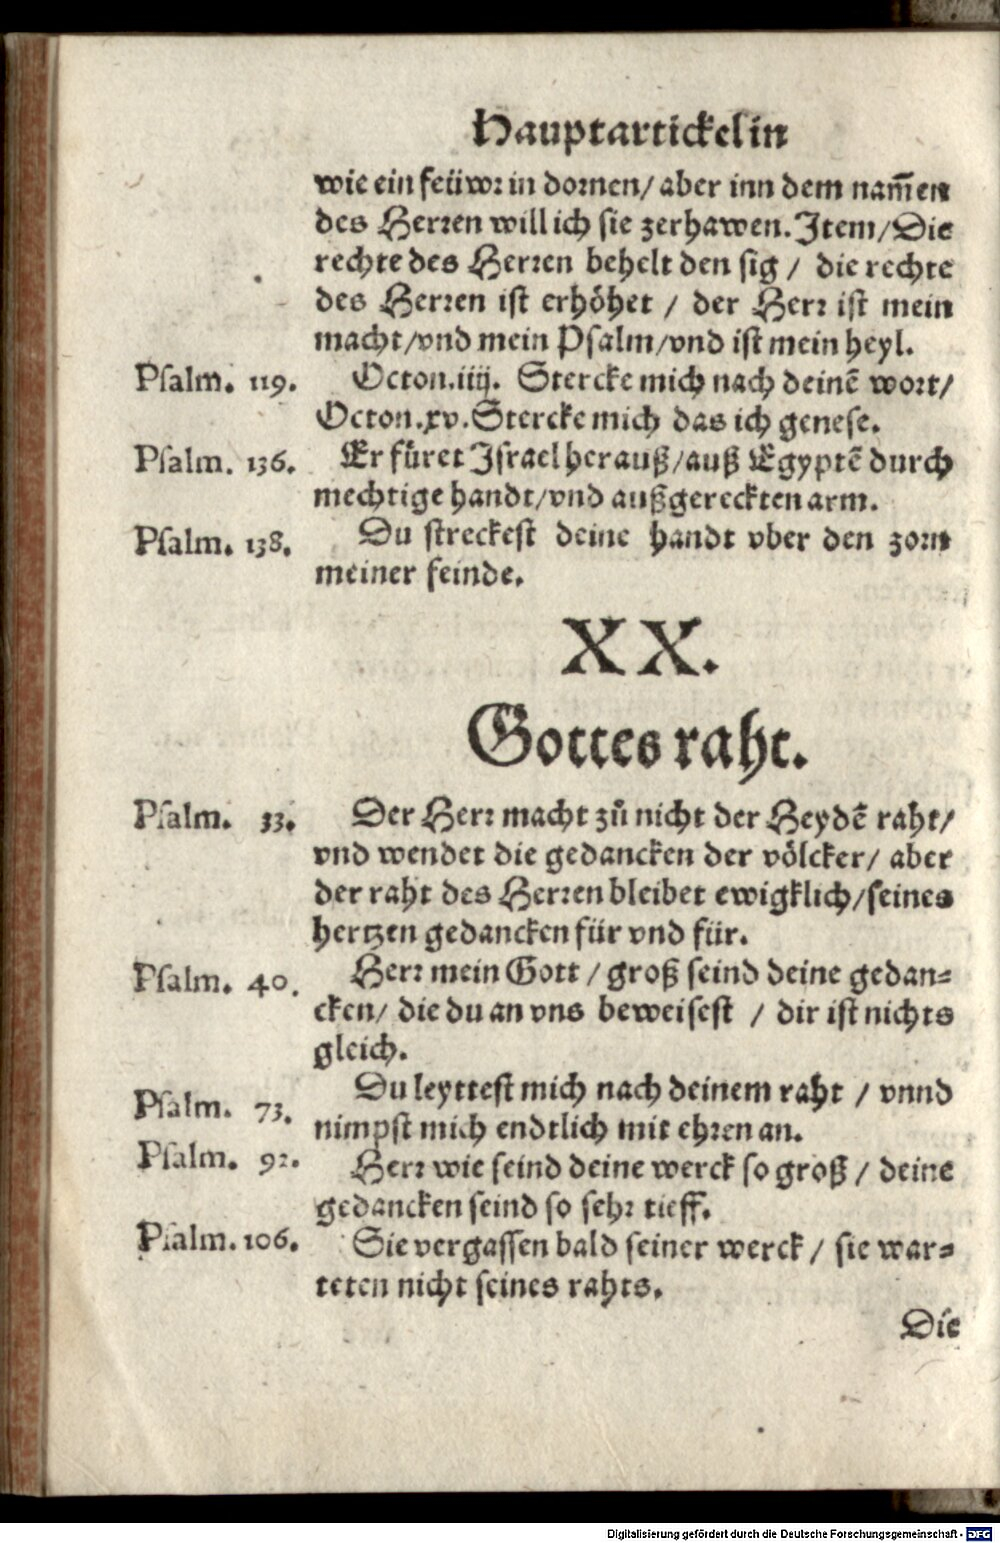 Hauptartickel in
wie ein feüwr in dornen/ aber inn dem nam̄en
des Herren will ich sie zerhawen. Item/ Die
rechte des Herren behelt den sig / die rechte
des Herren ist erhöhet / der Herr ist mein
macht/vnd mein Psalm/vnd ist mein heyl.
Psalm. 119. Octon.iiij. Stercke mich nach deinē wort/
Octon.xv. Stercke mich das ich genese.
Psalm. 136. Er füret Israel herauß/auß Egyptē durch
mechtige handt/vnd außgereckten arm.
Psalm. 138. Du streckest deine handt vber den zorn
meiner feinde.
XX.
Gottes raht.
Psalm. 33. Der Herr macht zů nicht der Heydē raht/
vnd wendet die gedancken der völcker/ aber
der raht des Herren bleibet ewigklich/seines
hertzen gedancken für vnd für.
Psalm. 40. Herr mein Gott / groß seind deine gedan-
cken/ die du an vns beweisest / dir ist nichts
gleich.
Psalm. 73. Du leyttest mich nach deinem raht / vnnd
nimpst mich endtlich mit ehren an.
Psalm. 92. Herr wie seind deine werck so groß / deine
gedancken seind so sehr tieff.
Psalm. 106. Sie vergassen bald seiner werck / sie war-
teten nicht seines rahts.
Die
Digitalisierung gefördert durch die Deutsche Forschungsgemeinschaft - DFG